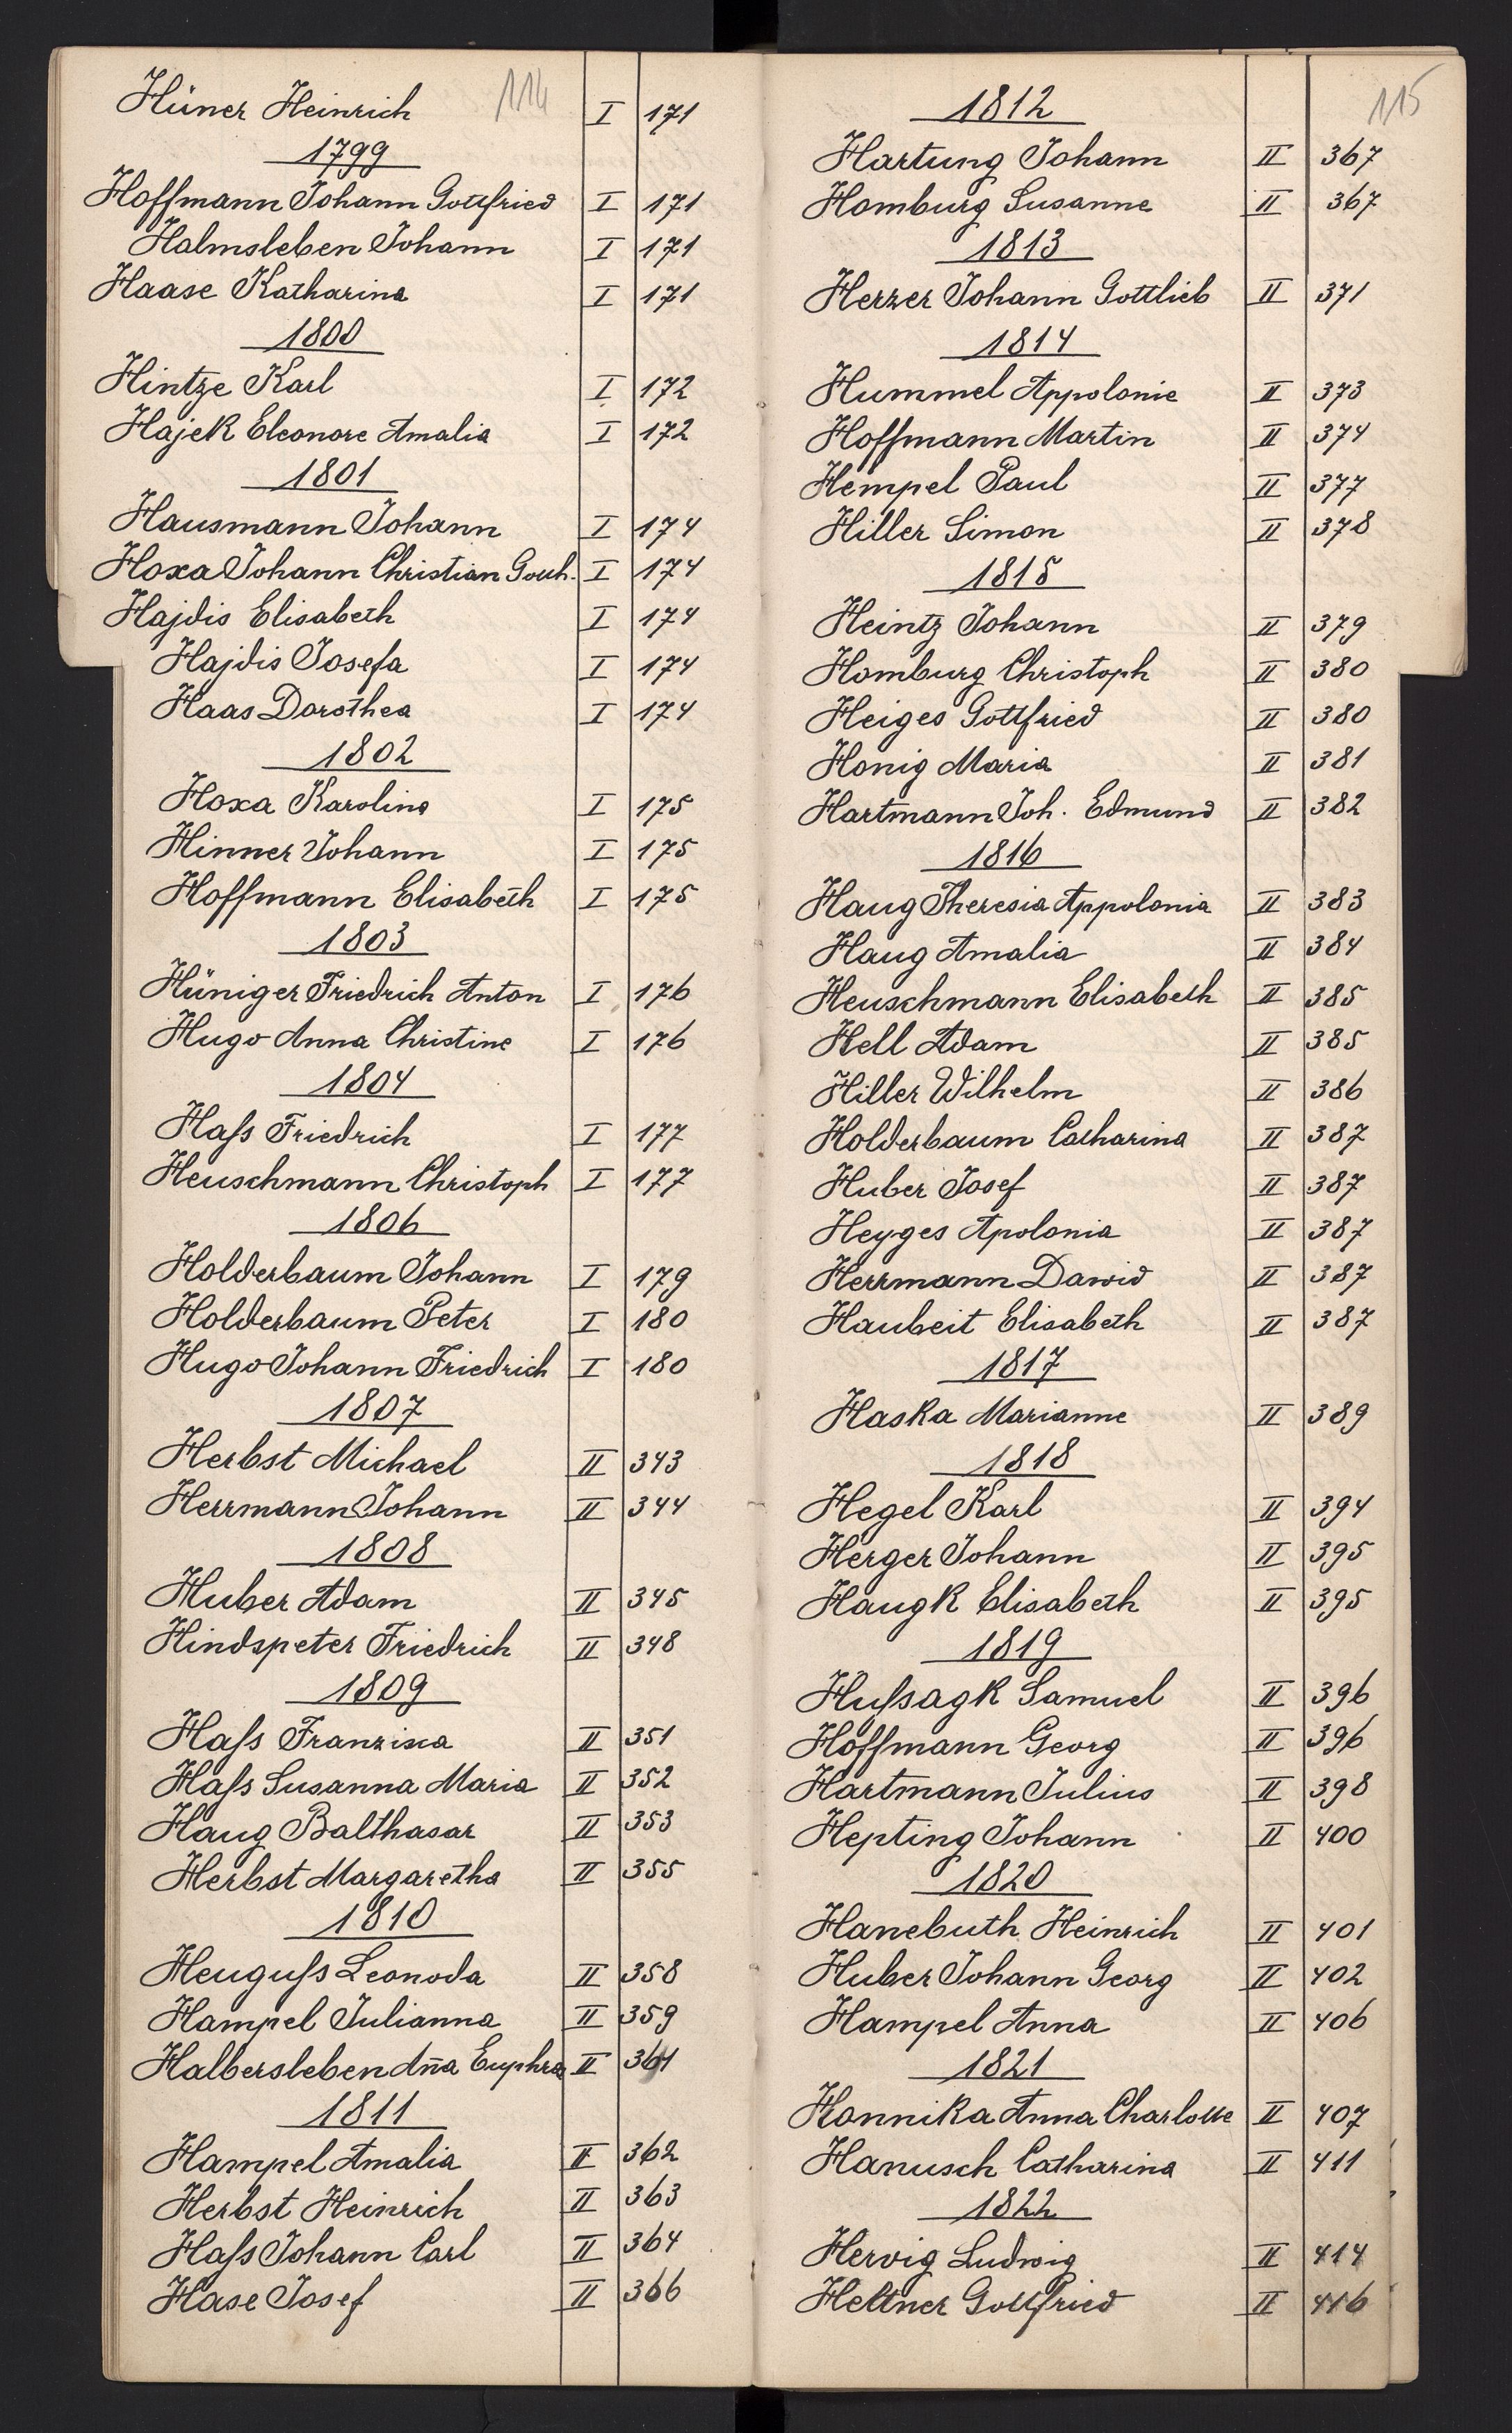 114
Hüner Heinrich I 171
1799
Hoffmann Johann Gottfried I 171
Halmsleben Johann I 171
Haase Katharina I 171
1800
Hintze Karl I 172
Hajek Eleonore Amalia I 172
1801
Hausmann Johann I 174
Hoxa Johann Christian Gotth. I 174
Hajdis Elisabeth I 174
Hajdis Josefa I 174
Haas Dorothea I 174
1802
Hoxa Karolina I 175
Hinner Johann I 175
Hoffmann Elisabeth I 175
1803
Hüniger Friedrich Anton I 176
Hugo Anna Christine I 176
1804
Haſs Friedrich I 177
Heuschmann Christoph I 177
1806
Holderbaum Johann I 179
Holderbaum Peter I 180
Hugo Johann Friedrich I 180
1807
Herbst Michael II 343
Herrmann Johann II 344
1808
Huber Adam II 345
Hindspeter Friedrich II 348
1809
Haſs Franzisca II 351
Haſs Susanna Maria II 352
Haug Balthasar II 353
Herbst Margaretha II 355
1810
Heuguſs Leonoda II 358
Hampel Julianna II 359
Halbersleben Ana Euphra II 361
1811
Hampel Amalia II 362
Herbst Heinrich II 363
Haſs Johann Carl II 364
Hase Josef II 366
115
1812
Hartung Johann II 367
Homburg Susanne II 367
1813
Herzer Johann Gottlieb II 371
1814
Hummel Appolonie II 373
Hoffmann Martin II 374
Hempel Paul II 377
Hiller Simon II 378
1815
Heintz Johann II 379
Homburg Christoph II 380
Heiges Gottfried II 380
Honig Maria II 381
Hartmann Joh. Edmund II 382
1816
Haug Theresia Appolonia II 383
Haug Amalia II 384
Heuschmann Elisabeth II 385
Hell Adam II 385
Hiller Wilhelm II 386
Holderbaum Catharina II 387
Huber Josef II 387
Heyges Apolonia II 387
Herrmann Dawid II 387
Haubeit Elisabeth II 387
1817
Haska Marianne II 389
1818
Hegel Karl II 394
Herger Johann II 395
Haugk Elisabeth II 395
1819
Huſsagk Samuel II 396
Hoffmann Georg II 396
Hartmann Julius II 398
Hepting Johann II 400
1820
Hanebuth Heinrich II 401
Huber Johann Georg II 402
Hampel Anna II 406
1821
Honnika Anna Charlotte II 407
Hanusch Catharina II 411
1822
Hervig Ludwig II 414
Heltner Gottfried II 416